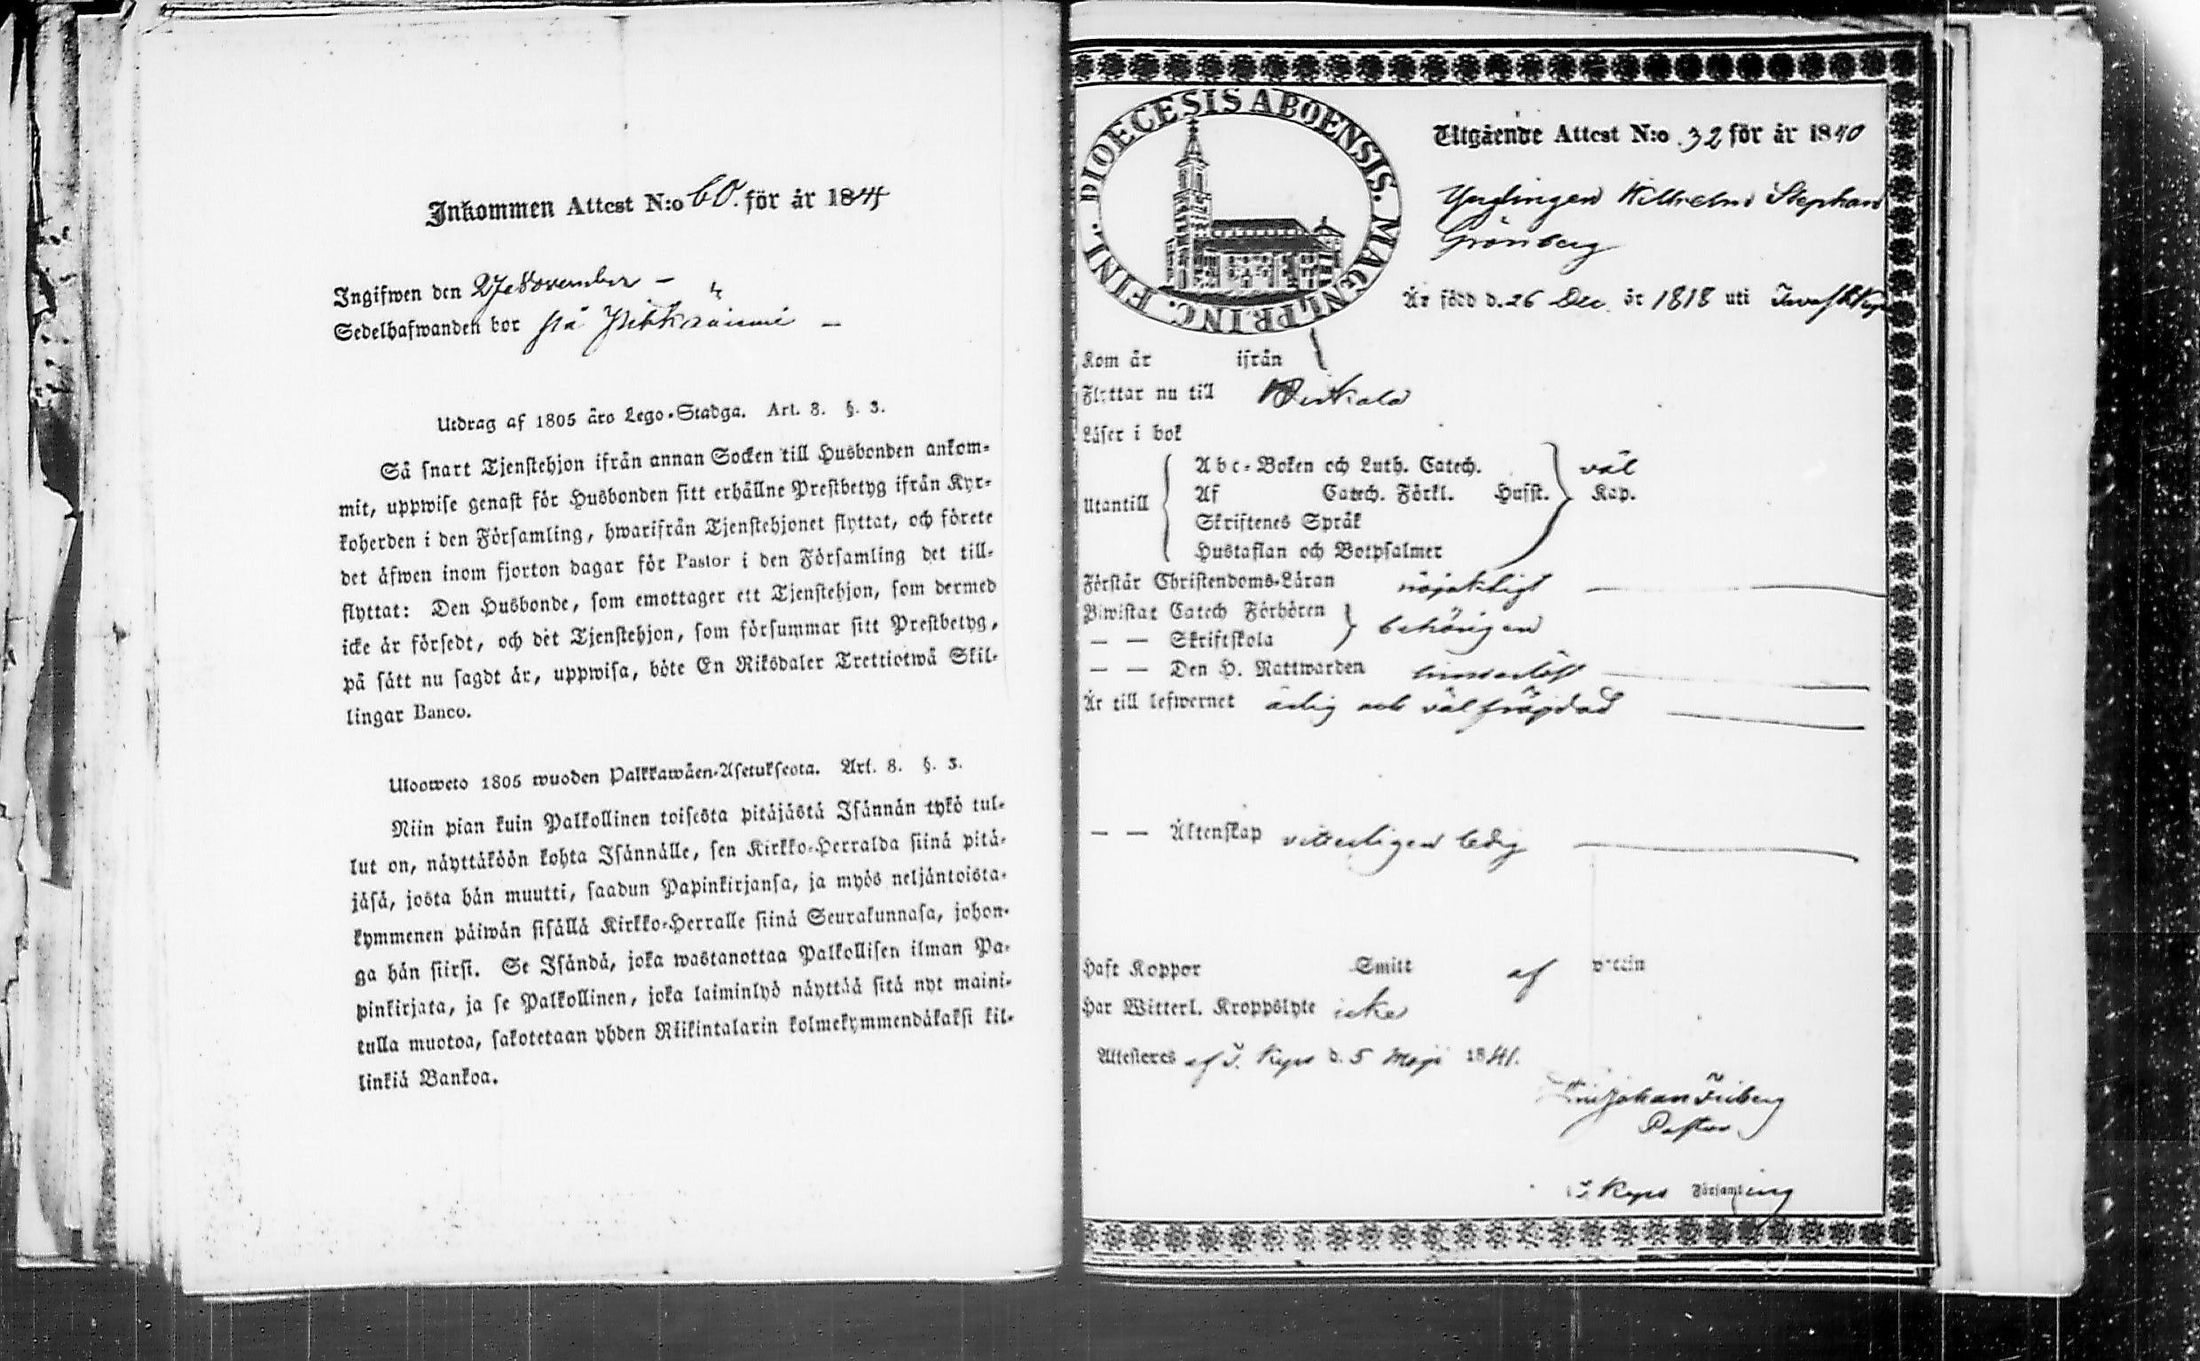 Inkommen Attest N:o 60. för år 1841
Ingifwen den 27 November –
Sedelhafwanden bor på Pitkäniemi –
Utdrag af 1805 års Lego-Stadga. Art. 8. §. 3.
Så snart Tjenstehjon ifrån annan Socken till Husbonden ankom-
mit, uppwise genast för Husbonden sitt erhållne Prestbetyg ifrån Kyr-
koherden i den Församling, hwarifrån Tjenstehjonet flyttat, och förete
det äfwen inom fjorton dagar för Pastor i den Församling det till-
flyttat: Den Husbonde, som emottager ett Tjenstehjon, som dermed
icke är försedt, och det Tjenstehjon, som försummar sitt Prestbetyg,
på sätt nu sagdt är, uppwisa, böte En Riksdaler Trettiotwå Skil-
lingar Banco.
Uloosweto 1805 wuoden Palkkawäen-Asetuksesta. Art. 8. §. 3.
Niin pian kuin Palkollinen toisesta pitäjästä Isännän tykö tul-
lut on, näyttäköön kohta Isännälle, sen Kirkko-Herralda siinä pitä-
jäsä, josta hän muutti, saadun Papinkirjansa, ja myös neljäntoista-
kymmenen päiwän sisällä Kirkko-Herralle siinä Seurakunnasa, johon-
ga hän siirsi. Se Isändä, joka wastanottaa Palkollisen ilman Pa-
pinkirjata, ja se Palkollinen, joka laiminlyö näyttää sitä nyt maini-
tulla muotoa, sakotetaan yhden Riikintalarin kolmekymmendäkaksi kil-
linkiä Bankoa.
DIOECESIS ABOENSIS. MAGNI PRINC. FINL.
Utgående Attest N:o 32 för år 1840
Ynglingen Wilhelm Stephan
Grönberg
Är född d. 26 Dec. år 1818 uti
Kom år ifrån
Flyttar nu till Birkala
Läser i bok
Abc-Boken och Luth. Catech. väl
Utantill Af Catech. Förkl. Husst. Kap.
Skriftenes Språk
Hustaflan och Botpsalmer
Förstår Christendoms-Läran nöjaktligt
Biwistat Catech Förhören behörigen
— — Skriftskola
— — Den H. Nattwarden hinderlöst
Är till lefwernet ärlig och välfrägdad
— — Äktenskap vitterligen ledig
Haft Koppor Smitt af vaccin
Har Witterl. Kroppslyte icke
Attesteres af T. Kyro d. 5 Maji 1841.
Johan Friberg
Pastor
T. Kyro Församling